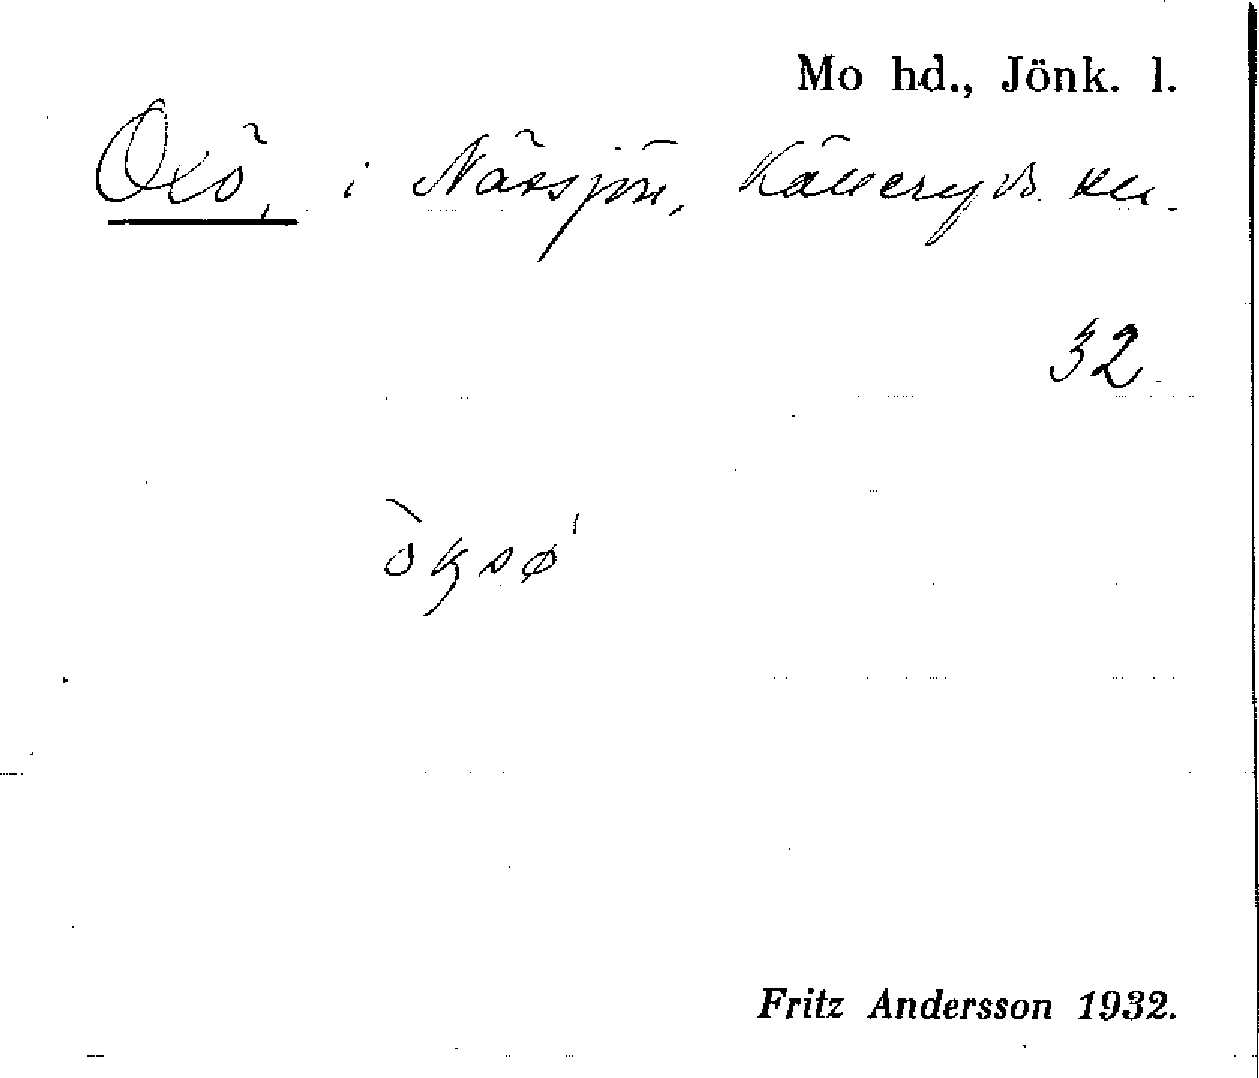 Mo hd., Jönk. l.
Oxö, i Nässjön, Källeryds sn.
32
òksø'
Fritz Andersson 1932.